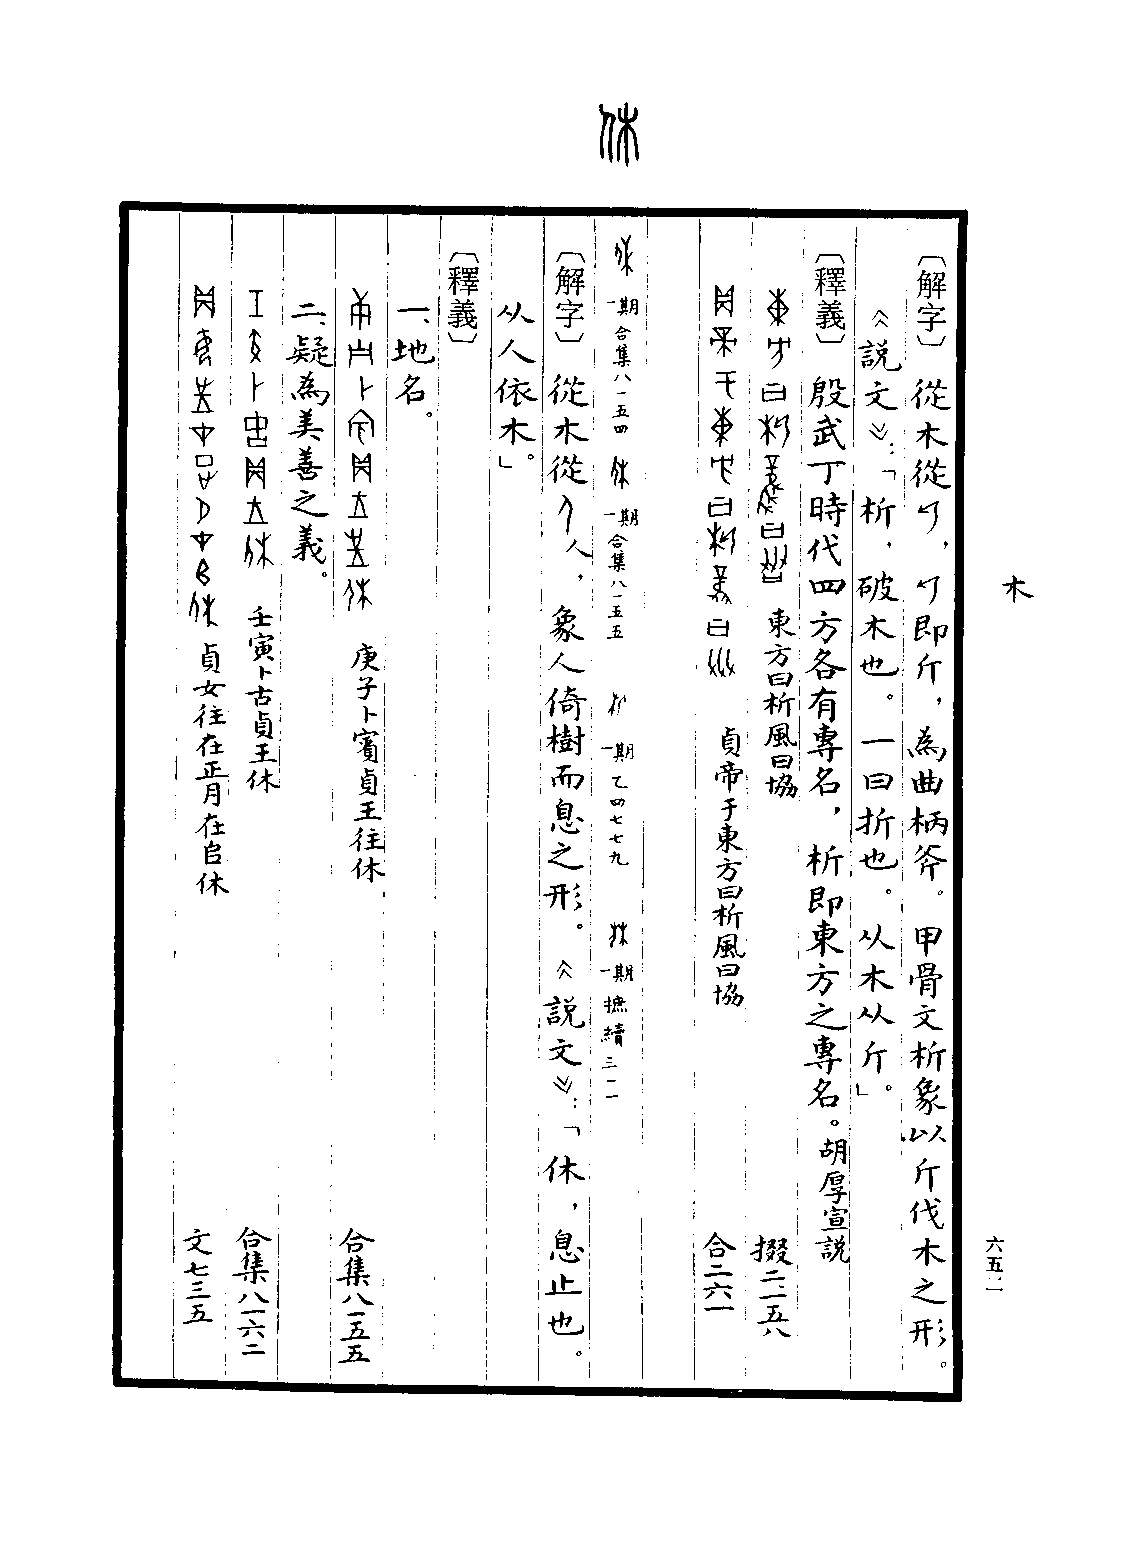 休
木
六五一
〔解字〕從木從，即斤，為曲柄斧。甲骨文析象以斤伐木之形。
《說文》：「析，破木也。一曰折也。从木从斤。」
〔釋義〕殷武丁時代四方各有專名，析即東方之專名。胡厚宣說
東方曰析風曰協 掇二·一五八
貞帝于東方曰析風曰協 合二六一
一期合集八一五四 一期合集八一五五 一期乙四七七九 一期摭續三一一
〔解字〕從木從人，象人倚樹而息之形。《說文》：「休，息止也。
从人依木。」
〔釋義〕
一、地名。
庚子卜賓貞王往休 合集八一五五
二、疑為美善之義。
壬寅卜古貞王休 合集八一六二
貞女往在正月在𠂤休 文七三五